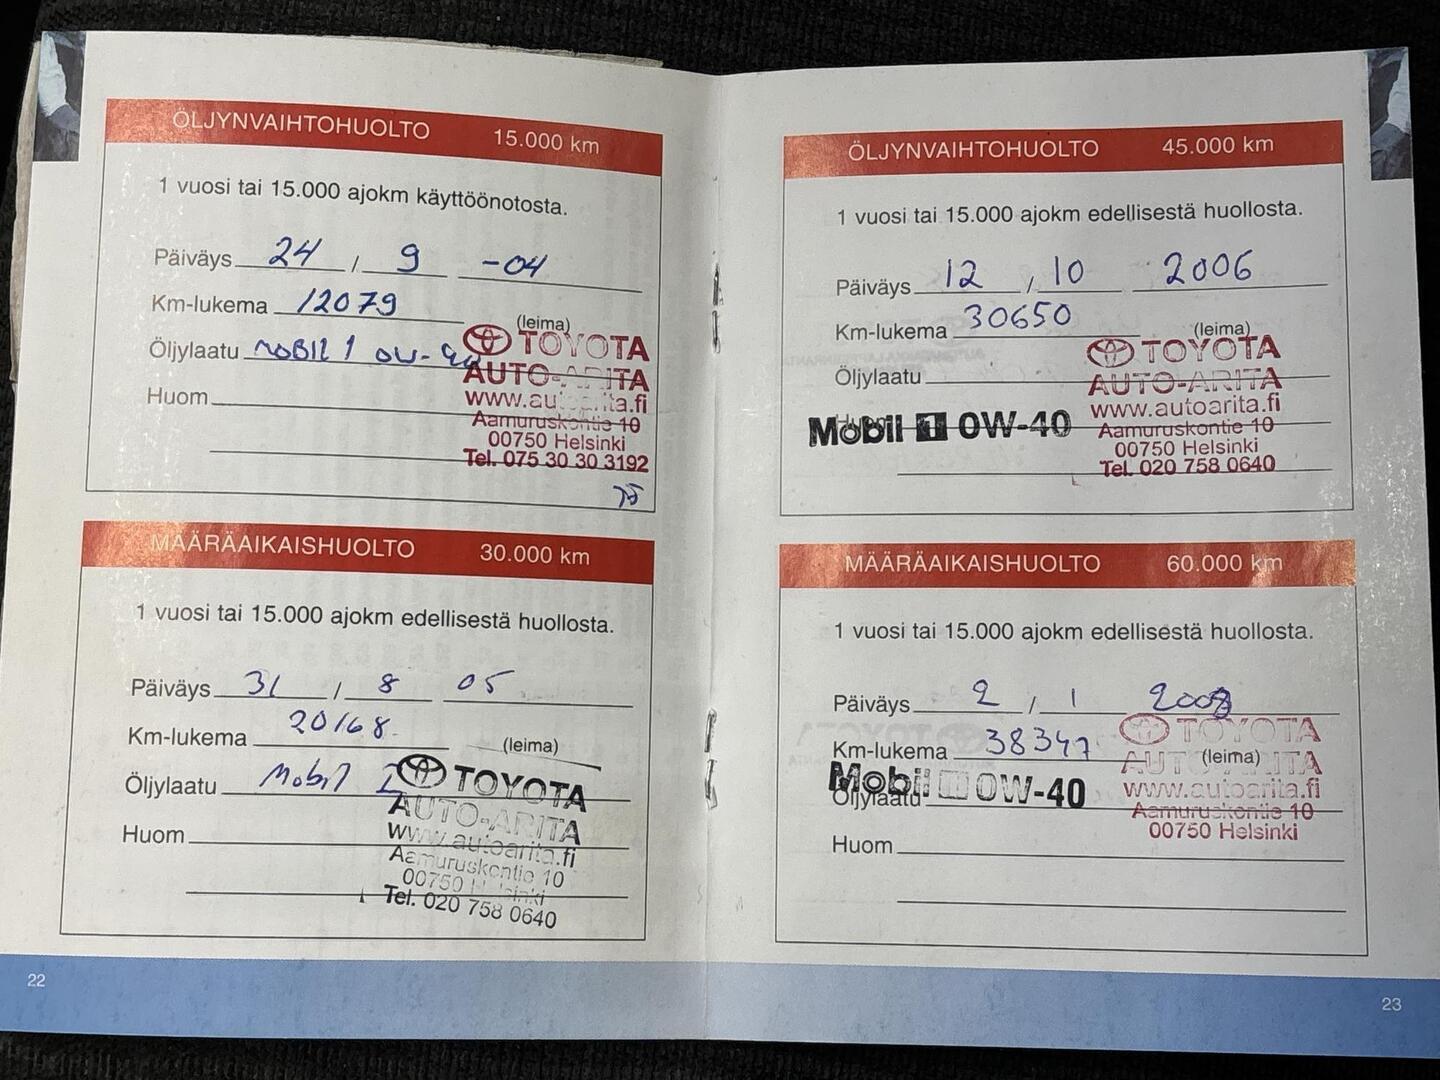 ÖLJYNVAIHTOHUOLTO 15.000 km
1 vuosi tai 15.000 ajokm käyttöönotosta.
Päiväys 24 / 9 -04
Km-lukema 12079
(leima)
Öljylaatu MOBIL 1 0W-40
Huom
TOYOTA
AUTO-ARITA
www.autoarita.fi
Aamuruskontie 10
00750 Helsinki
Tel. 075 30 30 3192
MÄÄRÄAIKAISHUOLTO 30.000 km
1 vuosi tai 15.000 ajokm edellisestä huollosta.
Päiväys 31 / 8 05
Km-lukema 20168
(leima)
Öljylaatu Mobil 1
Huom
TOYOTA
AUTO-ARITA
www.autoarita.fi
Aamuruskontie 10
00750 Helsinki
Tel. 020 758 0640
22
ÖLJYNVAIHTOHUOLTO 45.000 km
1 vuosi tai 15.000 ajokm edellisestä huollosta.
Päiväys 12 / 10 2006
Km-lukema 30650
(leima)
Öljylaatu
Huom
Mobil 1 0W-40
TOYOTA
AUTO-ARITA
www.autoarita.fi
Aamuruskontie 10
00750 Helsinki
Tel. 020 758 0640
MÄÄRÄAIKAISHUOLTO 60.000 km
1 vuosi tai 15.000 ajokm edellisestä huollosta.
Päiväys 2 / 1 2008
Km-lukema 38347
(leima)
Mobil 1 0W-40
Öljylaatu
Huom
TOYOTA
AUTO-ARITA
www.autoarita.fi
Aamuruskontie 10
00750 Helsinki
23